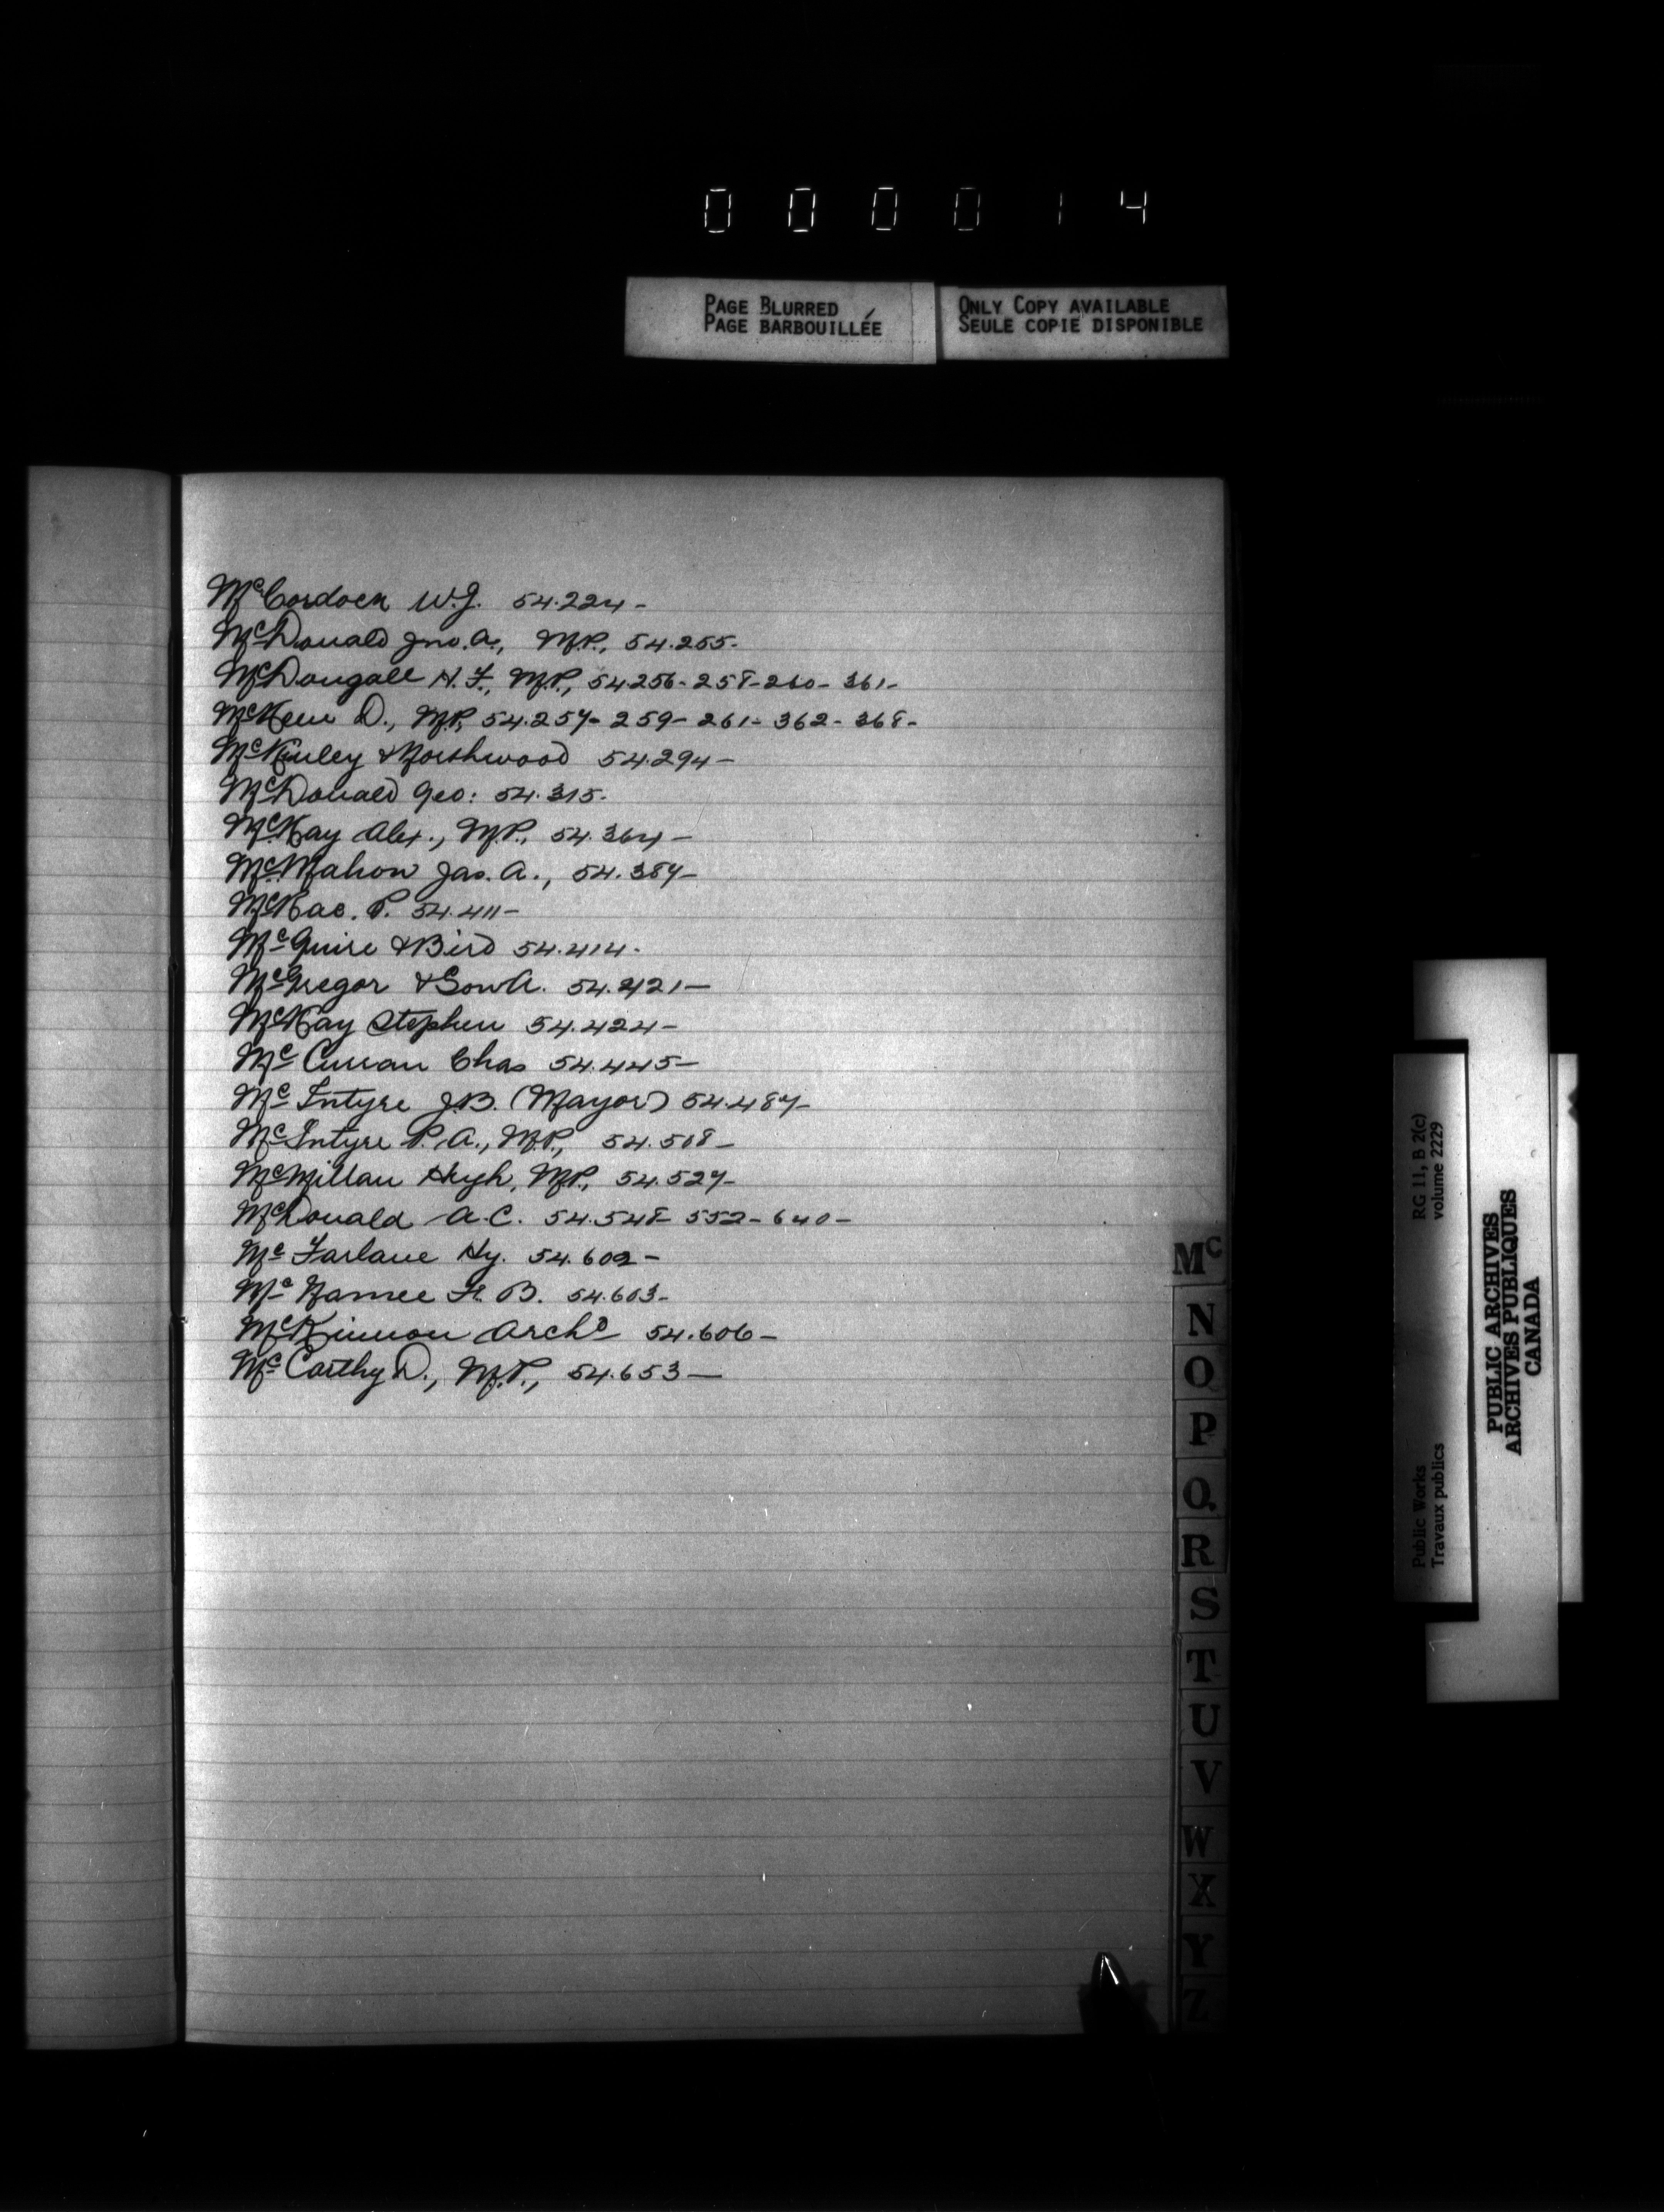 000014
PAGE BLURRED
PAGE BARBOUILLÉE
ONLY COPY AVAILABLE
SEULE COPIE DISPONIBLE
McCordock W.J. 54.224-
McDonald Jno. A., M.P., 54.255-
McDougall H.F., M.P., 54.256-258-260-361-
McKeen D., M.P., 54.257-259-261-362-368-
McKinley & Northwood 54.294-
McDonald Geo: 54.315-
McKay Alex., M.P., 54.364-
McMahon Jas. A., 54.387-
McRae. P. 54.411-
McGuire & Bird 54.414-
McGregor & Son A. 54.421-
McKay Stephen 54.424-
McCurran Chas 54.445-
McIntyre J.B. (Mayor) 54.487-
McIntyre P.A., M.P., 54.508-
McMillan Hugh, M.P., 54.527-
McDonald A.C. 54.548-552-640-
McFarlane Hy. 54.602-
McNamee F. B. 54.603-
McKinnon Archd 54.606-
McCarthy D., M.P., 54.653-
Mc
N
O
P
Q
R
S
T
U
V
W
X
Y
Z
Public Works RG 11, B 2(c)
Travaux publics volume 2229
PUBLIC ARCHIVES
ARCHIVES PUBLIQUES
CANADA